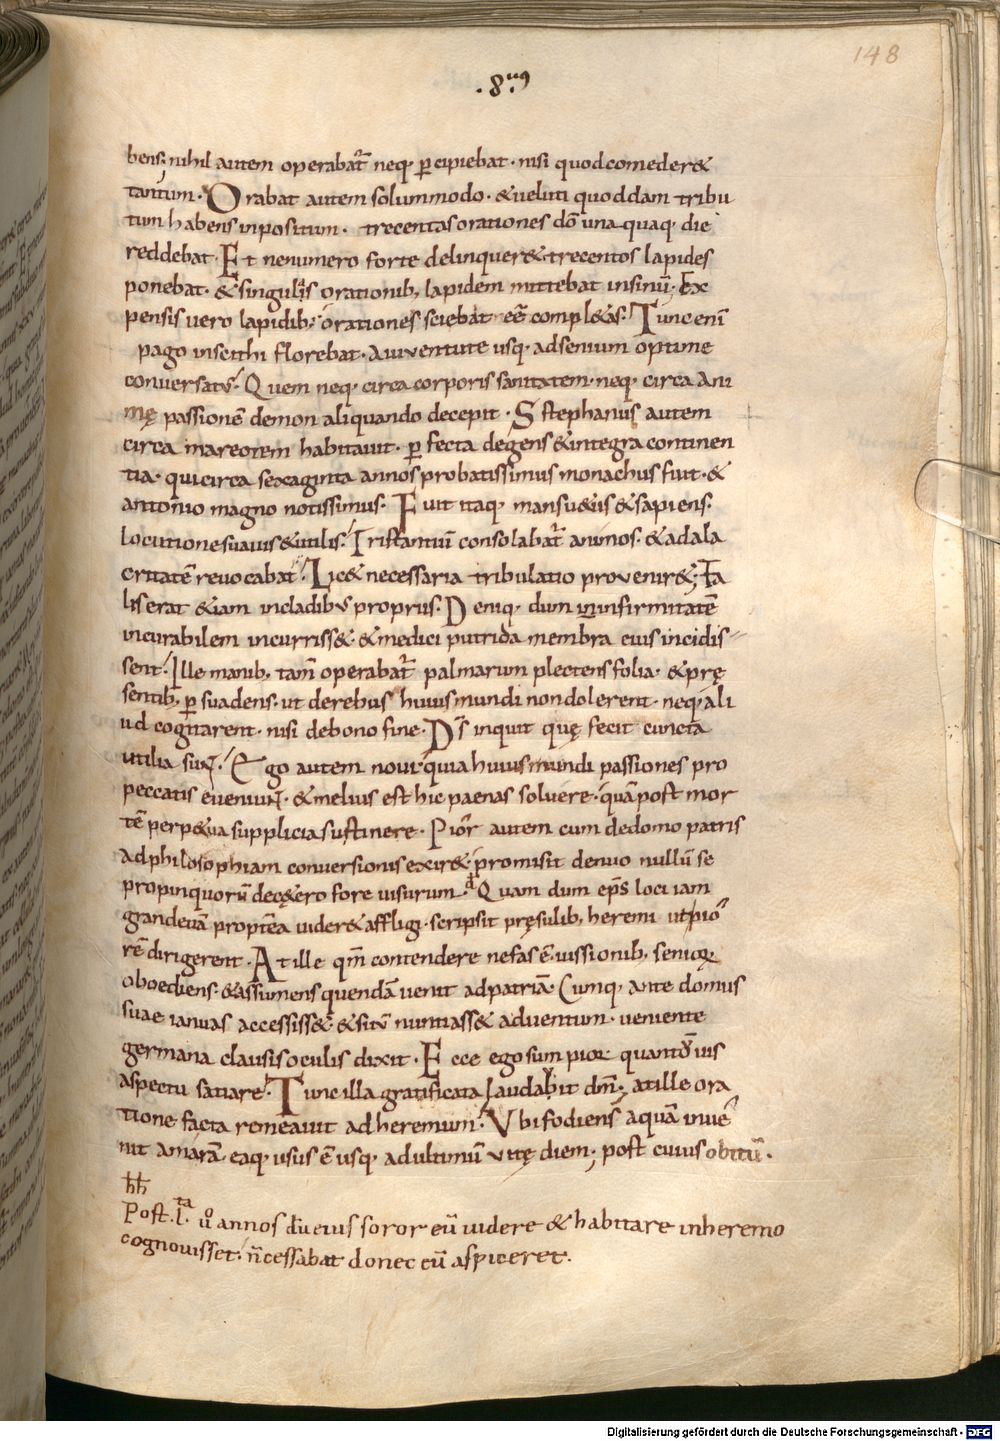 148
.8.us
bens; nihil autem operabat̃ neq; ꝑcipiebat · nisi quod comeder&
tantum · Orabat autem solummodo · & ueluti quoddam tribu
tum habens inpositum · trecentas orationes dõ una quaq; die
reddebat · Et ne numero forte delinquer& trecentos lapides
ponebat · & singulis orationib; lapidem mittebat in sinũ · Ex
pensis uero lapidib; orationes sciebat eẽ compl&as · Tunc enĩ
pago in scithi florebat · A iuuentute usq; ad senium optime
conuersatus · Quem neq; circa corporis sanitatem · neq; circa ani
mę passionẽ demon aliquando decepit · S stephanus autem
circa mareotem habitauit · ꝑfecta degens & integra continen
tia · qui circa sexaginta annos probatissimus monachus fuit · &
antonio magno notissimus · Fuit itaq; mansu&us & sapiens ·
locutione suauis & utilis · Tristantiũ consolabat̃ animos · & ad ala
critatẽ reuocabat · Lic& necessaria tribulatio prouenir&; Ta
lis erat &iam in cladibus propriis · Deniq; dum in infirmitatẽ
incurabilem incurriss& · & medici putrida membra eius incidis-
sent · Ille manib; tam̃ operabat̃ palmarum plectens folia · & prę
sentib; ꝑsuadens · ut de rebus huius mundi non dolerent · neq; ali
ud cogitarent · nisi de bono fine · Ds̃ inquit quę fecit cuncta
utilia sunt · Ego autem noui · quia huius mundi passiones pro
peccatis eueniunt · & melius est hic paenas soluere · quã post mor
tẽ perp&ua supplicia sustinere · Pior autem cum de domo patris
ad philosophiam conuersionis exir& · promisit denuo nullũ se
propinquorũ de c&ero fore uisurum · Quam dum ep̃s loci iam
grandeuã propterea uider& affligi · scripsit pręsulib; heremi ut pio
rẽ dirigerent · At ille qm̃ contendere nefas ẽ iussionib; seniorꝝ
oboediens · & assumens quendã uenit ad patriã · Cumq; ante domus
suae ianuas accessiss& · & situs nuntiass& aduentum · ueniente
germana clausis oculis dixit · Ecce ego sum pior quantũ uis
aspectu satiare · Tunc illa gratificata laudabit dm̃; at ille ora
tione facta remeauit ad heremum · Vbi fodiens aquã inue
nit amarã · eaq; usus ẽ usq; ad ultimũ uitę diem; post cuius obitũ ·
hh
Post · l·ta ũ annos dũ eius soror eũ uidere & habitare in heremo
cognouisset · ñ cessabat donec eũ aspiceret ·
Digitalisierung gefördert durch die Deutsche Forschungsgemeinschaft - DFG